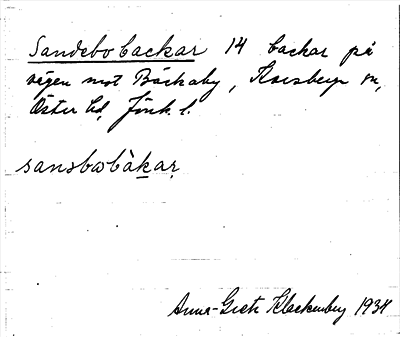 Sandebo backar 14 backar på
vägen mot Bäckaby, Korsberga sn,
Öster hd, Jönk. l.
sansbωbàkar
Anna-Greta Klackenberg 1934